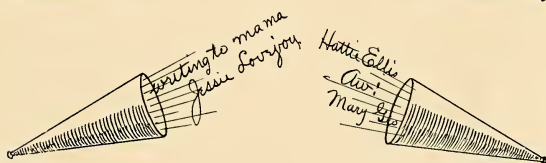 writing to mama
Jessie Lovejoy
Hattie Ellis
Aw!
Mary Geo